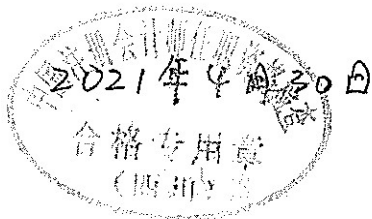 中国注册会计师任职资格检查
2021年4月30日
合格专用章
(四川)